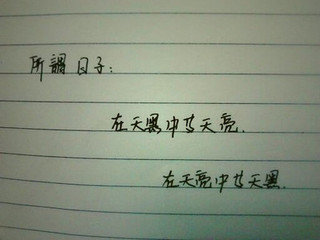 所謂日子：
在天黑中等天亮.
在天亮中等天黑.